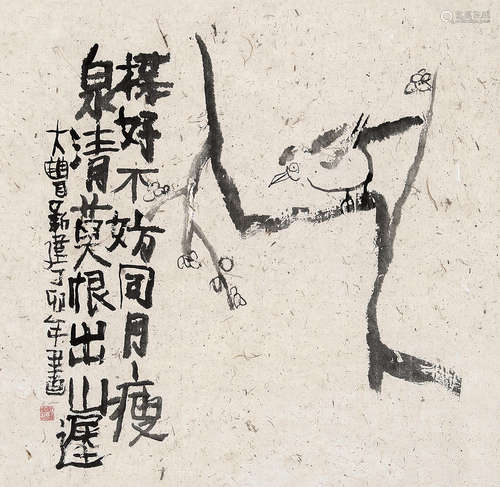 好不妨同月瘦
泉清莫恨出山遲
大豐新建丁卯年畫